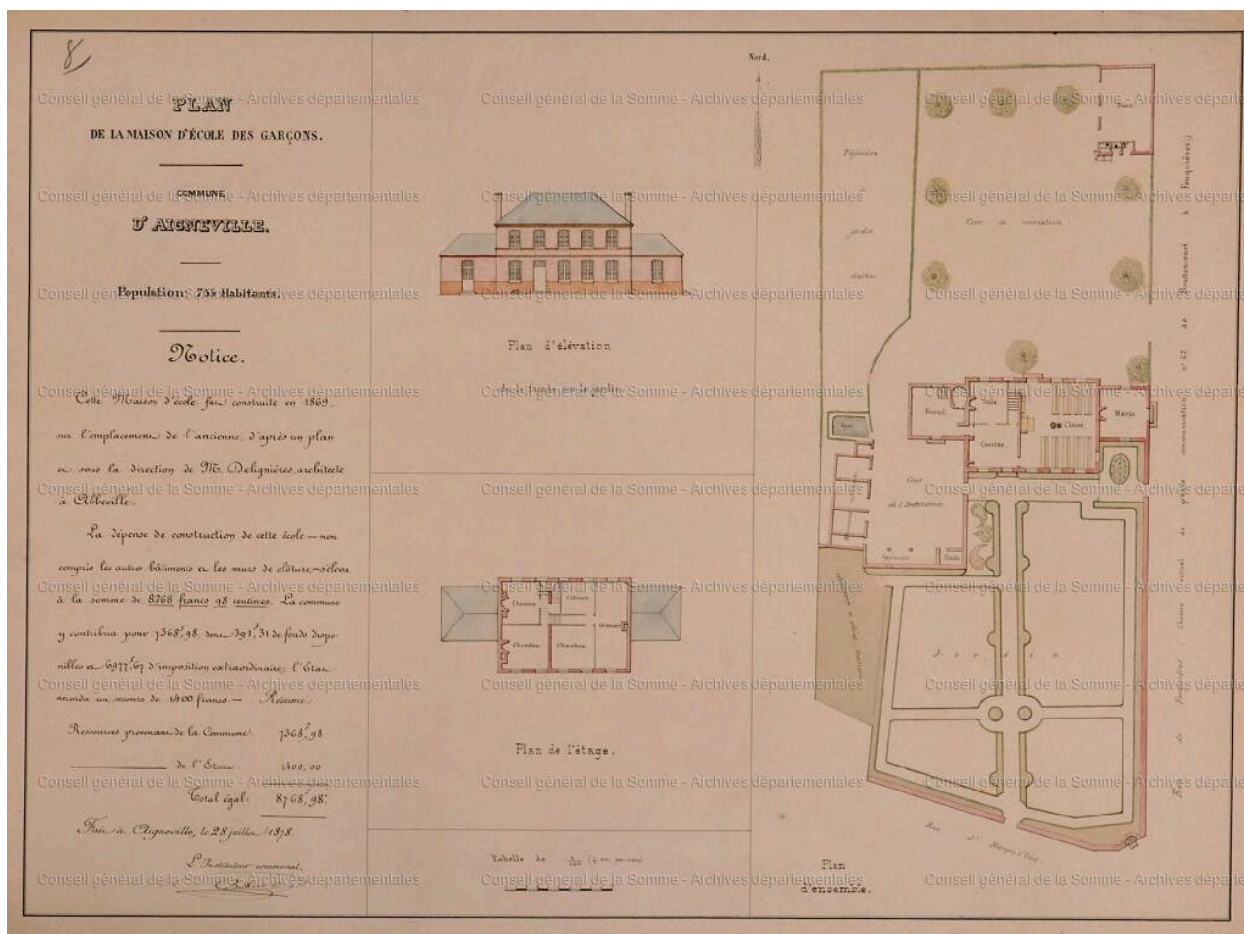 8
PLAN
DE LA MAISON D'ÉCOLE DES GARÇONS.
COMMUNE
D'AIGNEVILLE.
Population: 755 Habitants.
Notice.
Cette Maison d'école fut construite en 1869,
sur l'emplacement de l'ancienne, d'après un plan
et sous la direction de M. Delignières, architecte
à Abbeville.
La dépense de construction de cette école — non
compris les autres bâtiments et les murs de clôture — s'éleva
à la somme de 8768 francs 98 centimes. La commune
y contribua pour 7368f,98, dont 391f,31 de fonds dispo-
nibles et 6977f,67 d'imposition extraordinaire; l'État
accorda un secours de 1400 francs. — Résumé:
Ressources provenant de la Commune: 7368f,98
de l'État: 1400,00
Total égal: 8768f,98c
Fait à Aigneville, le 28 juillet 1878.
L'Instituteur communal,
Plan d'élévation
de la façade sur le jardin.
Chambre
Cabinet
Grenier
Chambre
Chambre
Plan de l'étage.
Echelle de
Nord.
Pépinière
et
jardin
fruitier
Cour de récréation
Fournil
Salle
Cuisine
Classe
Mairie
Cour
de l'Instituteur
Jardin
Rue
Plan
d'ensemble.
Rue de Feuquières (Chemin vicinal de grande communication n° 67 de à Feuquières)
Conseil général de la Somme - Archives départementales